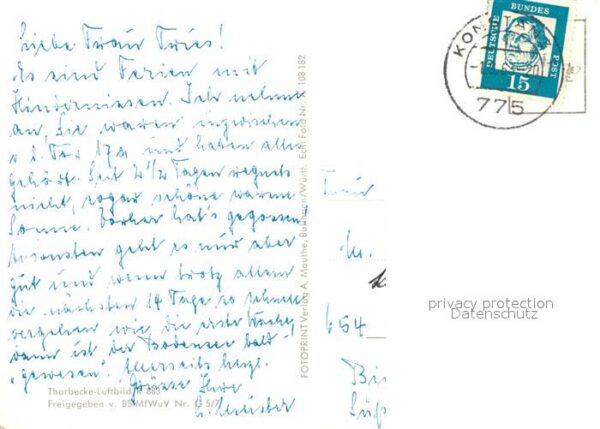 Liebe Frau Fries!
Es sind Ferien mit
Hindernissen. Ich nehme
an, Sie waren inzwischen
und haben alles
gehört. Seit 2½ Tagen regnets
nicht, sogar schöne warme
Sonne. Vorher hat's gegossen.
Ansonsten geht es mir aber
gut und wenn trotz allem
die nächsten 14 Tage so schnell
vergehen wie die erste Woche,
dann ist der Bodensee bald
"gewesen". Allerseits herzl.
Grüsse Ihre
Thorbecke-Luftbild R 885
Freigegeben v. BSMfWuV Nr. G 5/7
FOTOPRINT Verlag A. Mauthe, Balingen/Württ. Echt Foto Nr. 108 182
DEUTSCHE BUNDES POST
15
KONSTA
775
Frau
654
privacy protection
Datenschutz